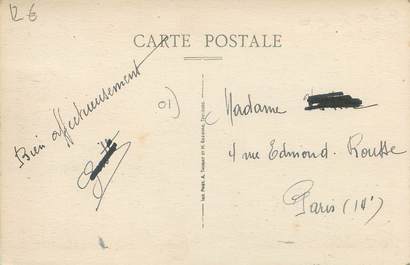 12 €
CARTE POSTALE
Bien affectueusement
01)
Madame
4 rue Edmond. Rousse
Paris (14e)